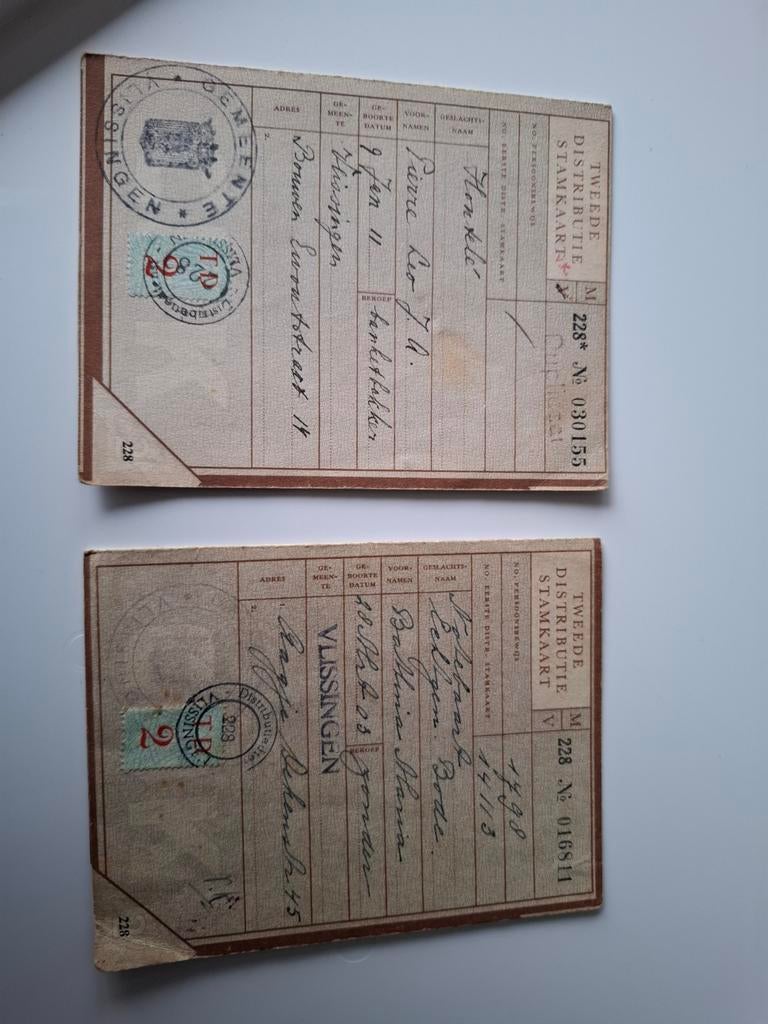 TWEEDE
DISTRIBUTIE
STAMKAART
M
V
228* № 030155
Duplicaat
NO. PERSOONSBEWIJS
NO. EERSTE DISTR. STAMKAART
GESLACHTS-
NAAM
VOOR-
NAMEN
Pierre Leo J. A.
GE-
BOORTE
DATUM
9 Jan 11
BEROEP
banketbakker
GE-
MEEN-
TE
Vlissingen
ADRES
2.
Bouwen Ewoutstraat 14
GEMEENTE * VLISSINGEN *
TD
2
Distributiedienst
228
VLISSINGEN
228
TWEEDE
DISTRIBUTIE
STAMKAART
M
V
228 № 016811
NO. PERSOONSBEWIJS
1798
NO. EERSTE DISTR. STAMKAART
14113
GESLACHTS-
NAAM
Notebaart
Echtgen. Bode.
VOOR-
NAMEN
Bathina Maria
GE-
BOORTE
DATUM
03
BEROEP
zonder
GE-
MEEN-
TE
VLISSINGEN
ADRES
1.
2.
Aagje Dekenstr 45
TD
2
Distributiedienst
228
VLISSINGEN
228